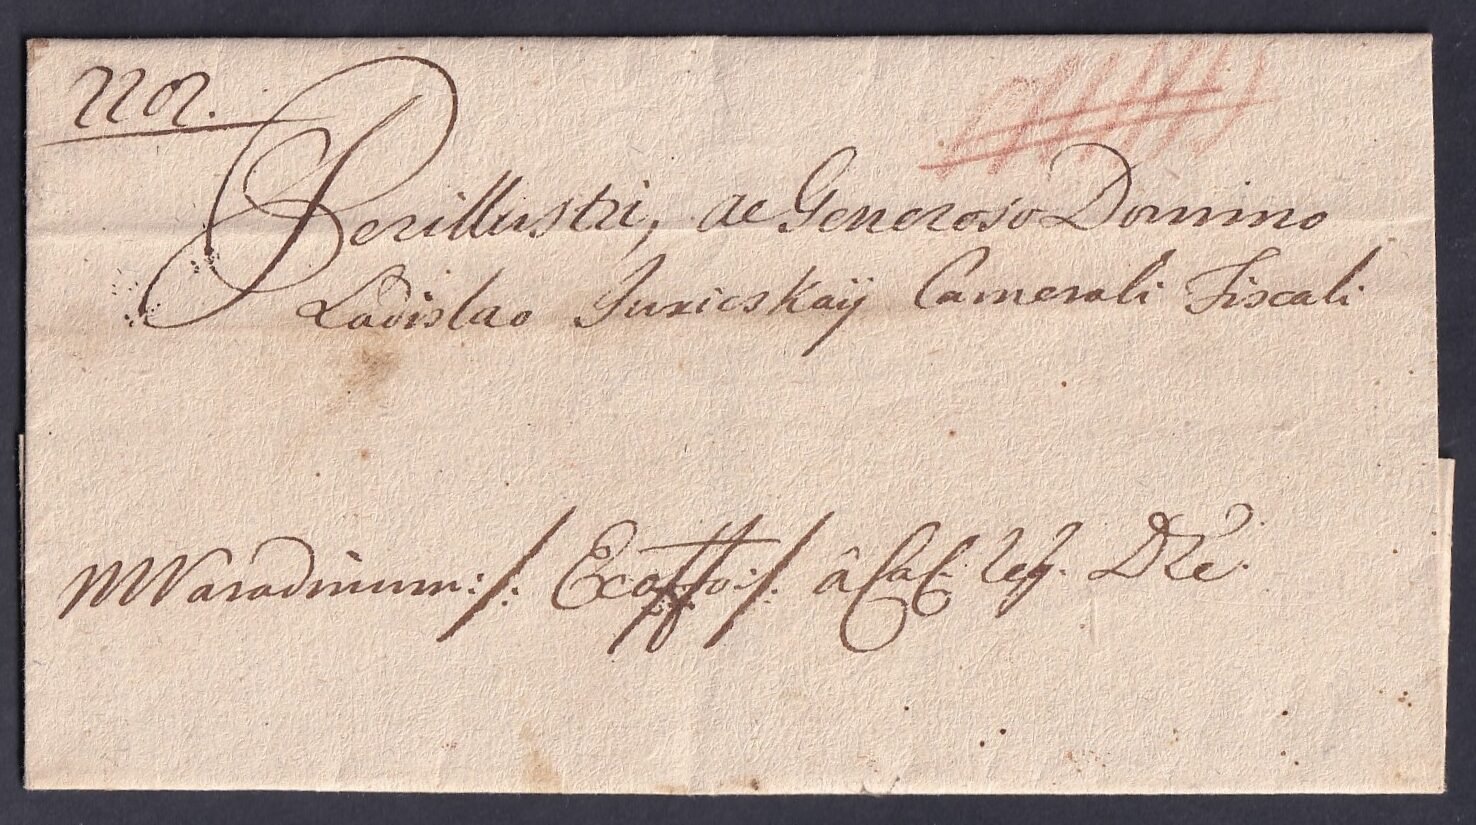 Perillustri, ac Generoso Domino
Ladislao Juricskaÿ Camerali Fiscali
MVaradinum:/: Ex offo:/. â